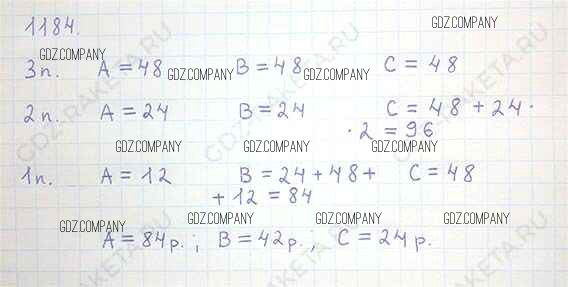 1184.
GDZ.COMPANY
GDZ.COMPANY
3п. A = 48 GDZ.COMPANY B = 48 GDZ.COMPANY C = 48
2п. A = 24 B = 24 C = 48 + 24 ·
· 2 = 96
GDZ.COMPANY GDZ.COMPANY GDZ.COMPANY
1п. A = 12 B = 24 + 48 + C = 48
+ 12 = 84
GDZ.COMPANY GDZ.COMPANY GDZ.COMPANY GDZ.COMPANY
A = 84р.; B = 42р.; C = 24р.
GDZ-RAKETA.RU
GDZ-RAKETA.RU
GDZ-RAKETA.RU